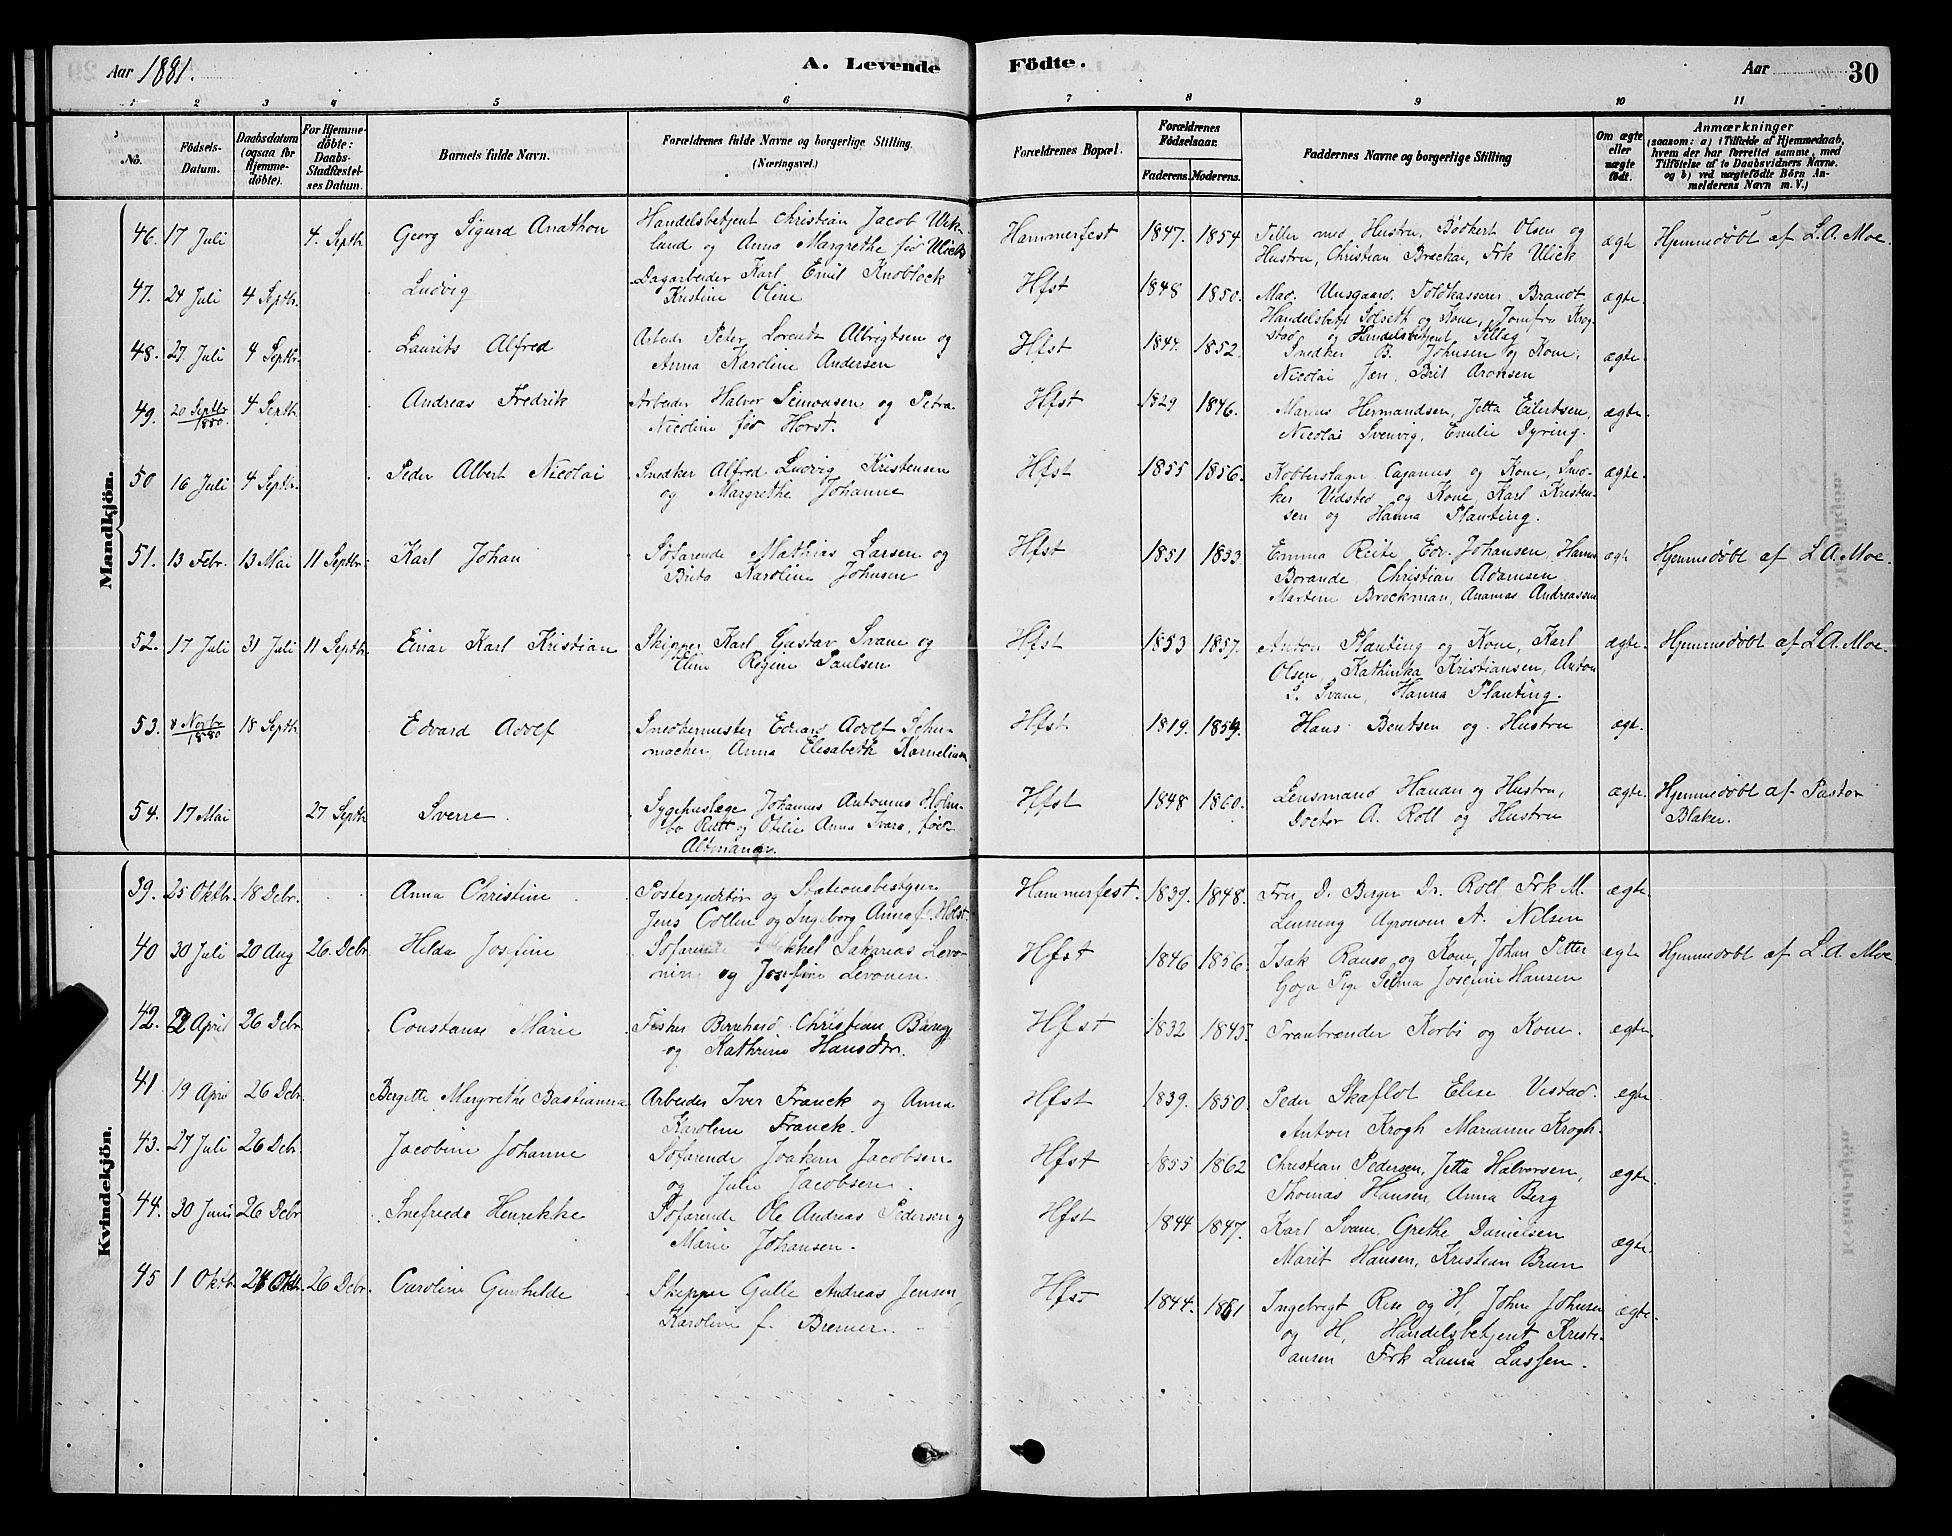 Aar 1881.
A. Levende
Födte.
Aar
30
1 2 3 4 5 6 7 8 9 10 11
No.
Födsels-
Datum.
Daabsdatum
(ogsaa for
Hjemme-
döbte).
For Hjemme-
döbte:
Daabs-
Stadfæstel-
ses Datum.
Barnets fulde Navn.
Forældrenes fulde Navne og borgerlige Stilling.
(Næringsvei.)
Forældrenes Bopæl.
Forældrenes
Födselsaar.
Faderens. Moderens.
Faddernes Navne og borgerlige Stilling
Om ægte
eller
uægte
födt.
Anmærkninger
(saasom: a) i Tilfælde af Hjemmedaab,
hvem der har forrettet samme, med
Tilföielse af to Daabsvidners Navne,
og b) ved uægtefödte Börn An-
melderens Navn m. V.)
Mandkjön.
46. 17 Juli 4. Septbr Georg Sigurd Anathon Handelsbetjent Christian Jacob Uck- Hammerfest 1847. 1854 Teller med Hustru, Bødkert Olsen og ægte Hjemmedøbt af L.A. Moe.
land og Anna Margrethe før Ulich Hustru, Christian Brechan, Frk Ulick
47. 24 Juli 4 Septbr. Ludvig Dagarbeider Karl Emil Knoblock Hfst 1848 1850. Mad. Unsgaard. Toldkasserer Brandt ægte
Kristine Oline Handelsbetj Solseth og Kone, Jomfru Krog-
stad og Handelsbetjent
48. 27 Juli 4 Septbr. Laurits Alfred Arbeider Peter Lorentz Albrigtsen og Hfst 1844. 1852. Snedker B. Johnsen og Kone, ægte
Anna Karoline Andersen Nicolai Jæn, Brit Aronsen
49. 20 Septbr 1880. 4 Septbr. Andreas Fredrik Arbeider Halvor Simonsen og Petra Hfst 1829 1846. Marius Hermandsen, Jetta Eilertsen, ægte
Nicoline før Horst. Nicolai Svenvig, Emilie Dyring.
50 16 Juli 4 Septbr. Peder Albert Nicolai Snedker Alfred Ludvig Kristensen Hfst 1855 1856. Kobberslager Cajanus, og Kone, Smo- ægte
og Margrethe Johanne ker Vedsted og Kone, Karl Kristen-
sen og Hanna Planting.
51. 13 Febr. 13 Mai 11 Septbr. Karl Johan Söfarende Mathias Larsen og Hfst 1851 1853. Emma Reite, Edv. Johansen, Hanna ægte Hjemmedøbt af L.A. Moe.
Brita Karoline Johnsen Borande Christian Adamsen
Martine Brockman, Ananias Andreassen
52. 17 Juli 31 Juli 11 Septbr. Einar Karl Kristian Skipper Karl Gustav Svane og Hfst 1853 1857. Anton Planting og Kone, Karl ægte Hjemmedøbt af L.A. Moe.
Elin Regine Paulsen Olsen, Kathinka Kristiansen, Anton
S. Svane, Hanna Planting.
53. 8 Novbr 1880 18 Septbr Edvard Adolf Snedkermester Edvard Adolf Schu- Hfst 1819. 1859. Hans Bentsen og Hustru ægte.
macher, Anna Elisabeth Korneliussen
54. 17 Mai 27 Septbr Sverre. Sygehuslæge Johannes Antonius Holm- Hfst 1848 1860. Lensmand Hanan og Hustru, ægte. Hjemmedøbt af Pastor
bo Rutt og Otilie Anna Ivara, født Doctor A. Roll og Hustru Blaker.
Kvindekjön.
39. 25 Oktbr. 18 Debr. Anna Christine Postexpeditør og Stationsbestyrer Hammerfest. 1839. 1848. Fru D. Berger Dr. Roll Frk M. ægte
Jens Collin og Ingeborg Anna f. Holst. Lenning Agronom A. Nilsen
40 30 Juli 20 Aug 26. Debr. Hilda Josefine Söfarende Mikkel Sakarias Levo- Hfst 1846 1856. Isak Ranso og Kone, Johan Pitter egte Hjemmedøbt af L.A. Moe
og Josefine Levonen Goja Pige Selma Josefine Hansen
42. 22 April 26 Debr. Constanse Marie Fisker Bernhard Christian Bang Hfst 1832 1845. Tranbrænder Korbi og Kone. egte.
og Kathrine Hansdtr.
41 19 April 26 Debr. Bergitte Margrethe Bastianna Arbeider Iver Franck og Anna Hfst 1839. 1850. Peder Skaflot Elise Vestad. egte
Karoline Franck. Anton Krogh Marianne Krogh.
43. 27 Juli 26 Debr. Jacobine Johanne Söfarende Joakim Jacobsen Hfst 1855 1862 Christian Pedersen, Jetta Halvorsen, ægte.
og Julie Jacobsen. Thomas Hansen, Anna Berg
44. 30 Juni 26 Debr Snefriede Henrikke Söfarende Ole Andreas Pedersen og Hfst 1844 1847. Karl Svane, Grethe Danielsen ægte.
Marie Johansen. Marit Hansen, Kristian Brun
45 1 Oktbr 24 Oktbr. 26 Debr. Caroline Gunhilde Skipper Gulle Andreas Jensen, Hfst 1844. 1851 Ingebrigt Rise og H, John Johnsen ægte.
Karoline f. Bremer. og H, Handelsbetjent Kristi-
ansen Frk Laura Lassen.